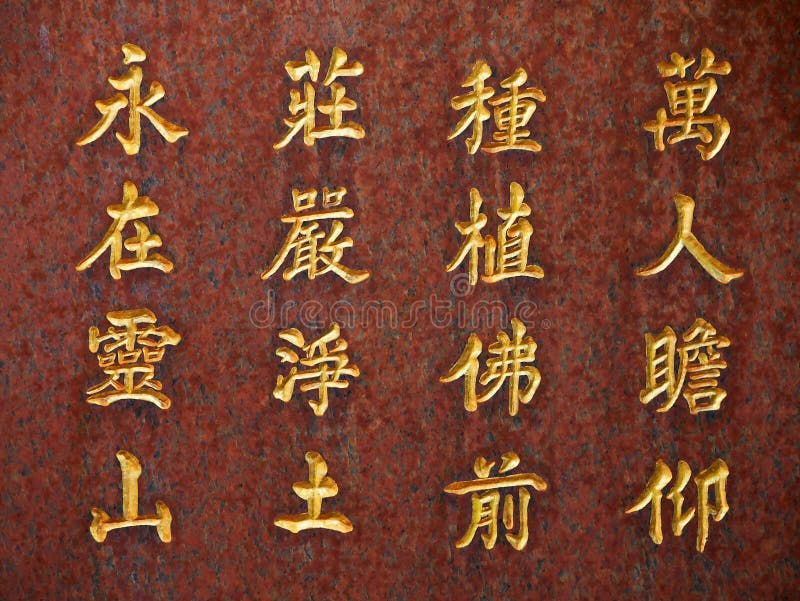 萬人瞻仰
種植佛前
莊嚴淨土
永在靈山
dreamstime